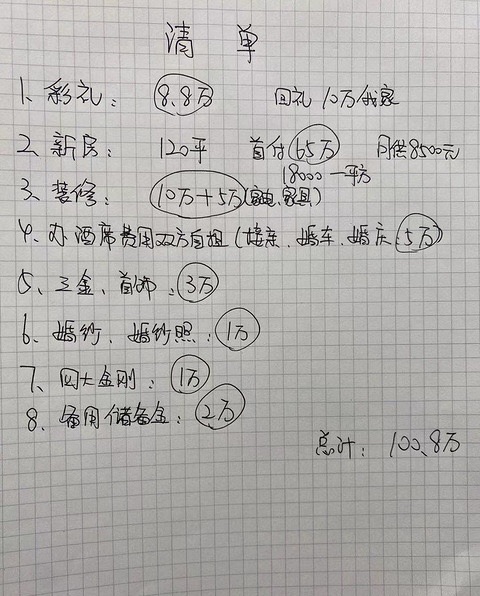 清单
1、彩礼：8.8万 回礼10万我家
2、新房：120平 首付65万 月供8500元
18000一平方
3、装修：10万+5万(家电、家具)
4、办酒席费用双方自担(接亲、婚车、婚庆5万)
5、三金、首饰：3万
6、婚纱、婚纱照：1万
7、四大金刚：1万
8、备用储备金：2万
总计：100.8万